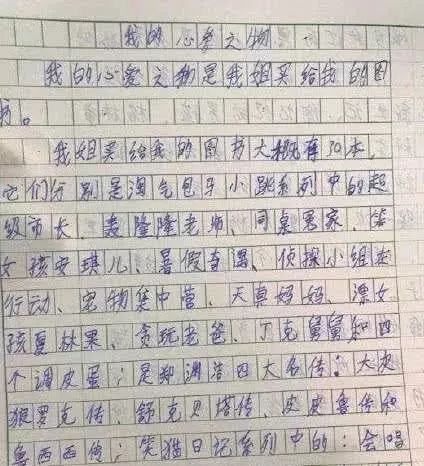 我的心爱之物
我的心爱之物是我姐买给我的图
书。
我姐买给我的图书大概有30本,
它们分别是淘气包马小跳系列中的超
级市长、轰隆隆老师、同桌冤家、笨
女孩安琪儿、暑假奇遇、侦探小组在
行动、宠物集中营、天真妈妈、漂女
孩夏林果、贪玩老爸、丁克舅舅和四
个调皮蛋;是郑渊洁四大名传:大灰
狼罗克传、舒克贝塔传、皮皮鲁传和
鲁西西传;笑猫日记系列中的:会唱